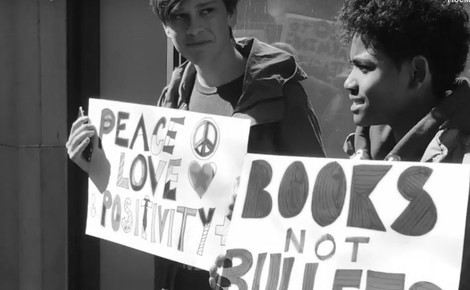 PEACE
LOVE
& POSITIVITY +
BOOKS
NOT
BULLETS